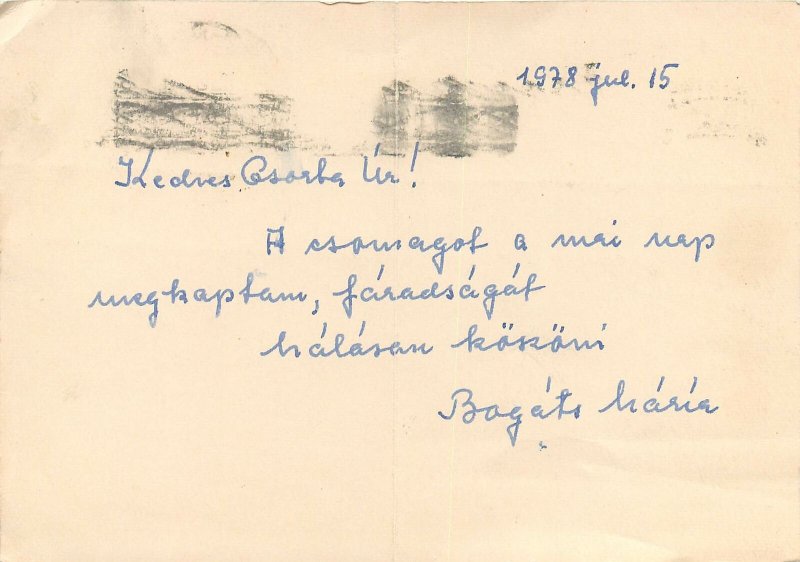 1978 jul. 15
Kedves Csorba Úr!
A csomagot a mai nap
megkaptam, fáradságát
hálásan köszöni
Bogáts Mária